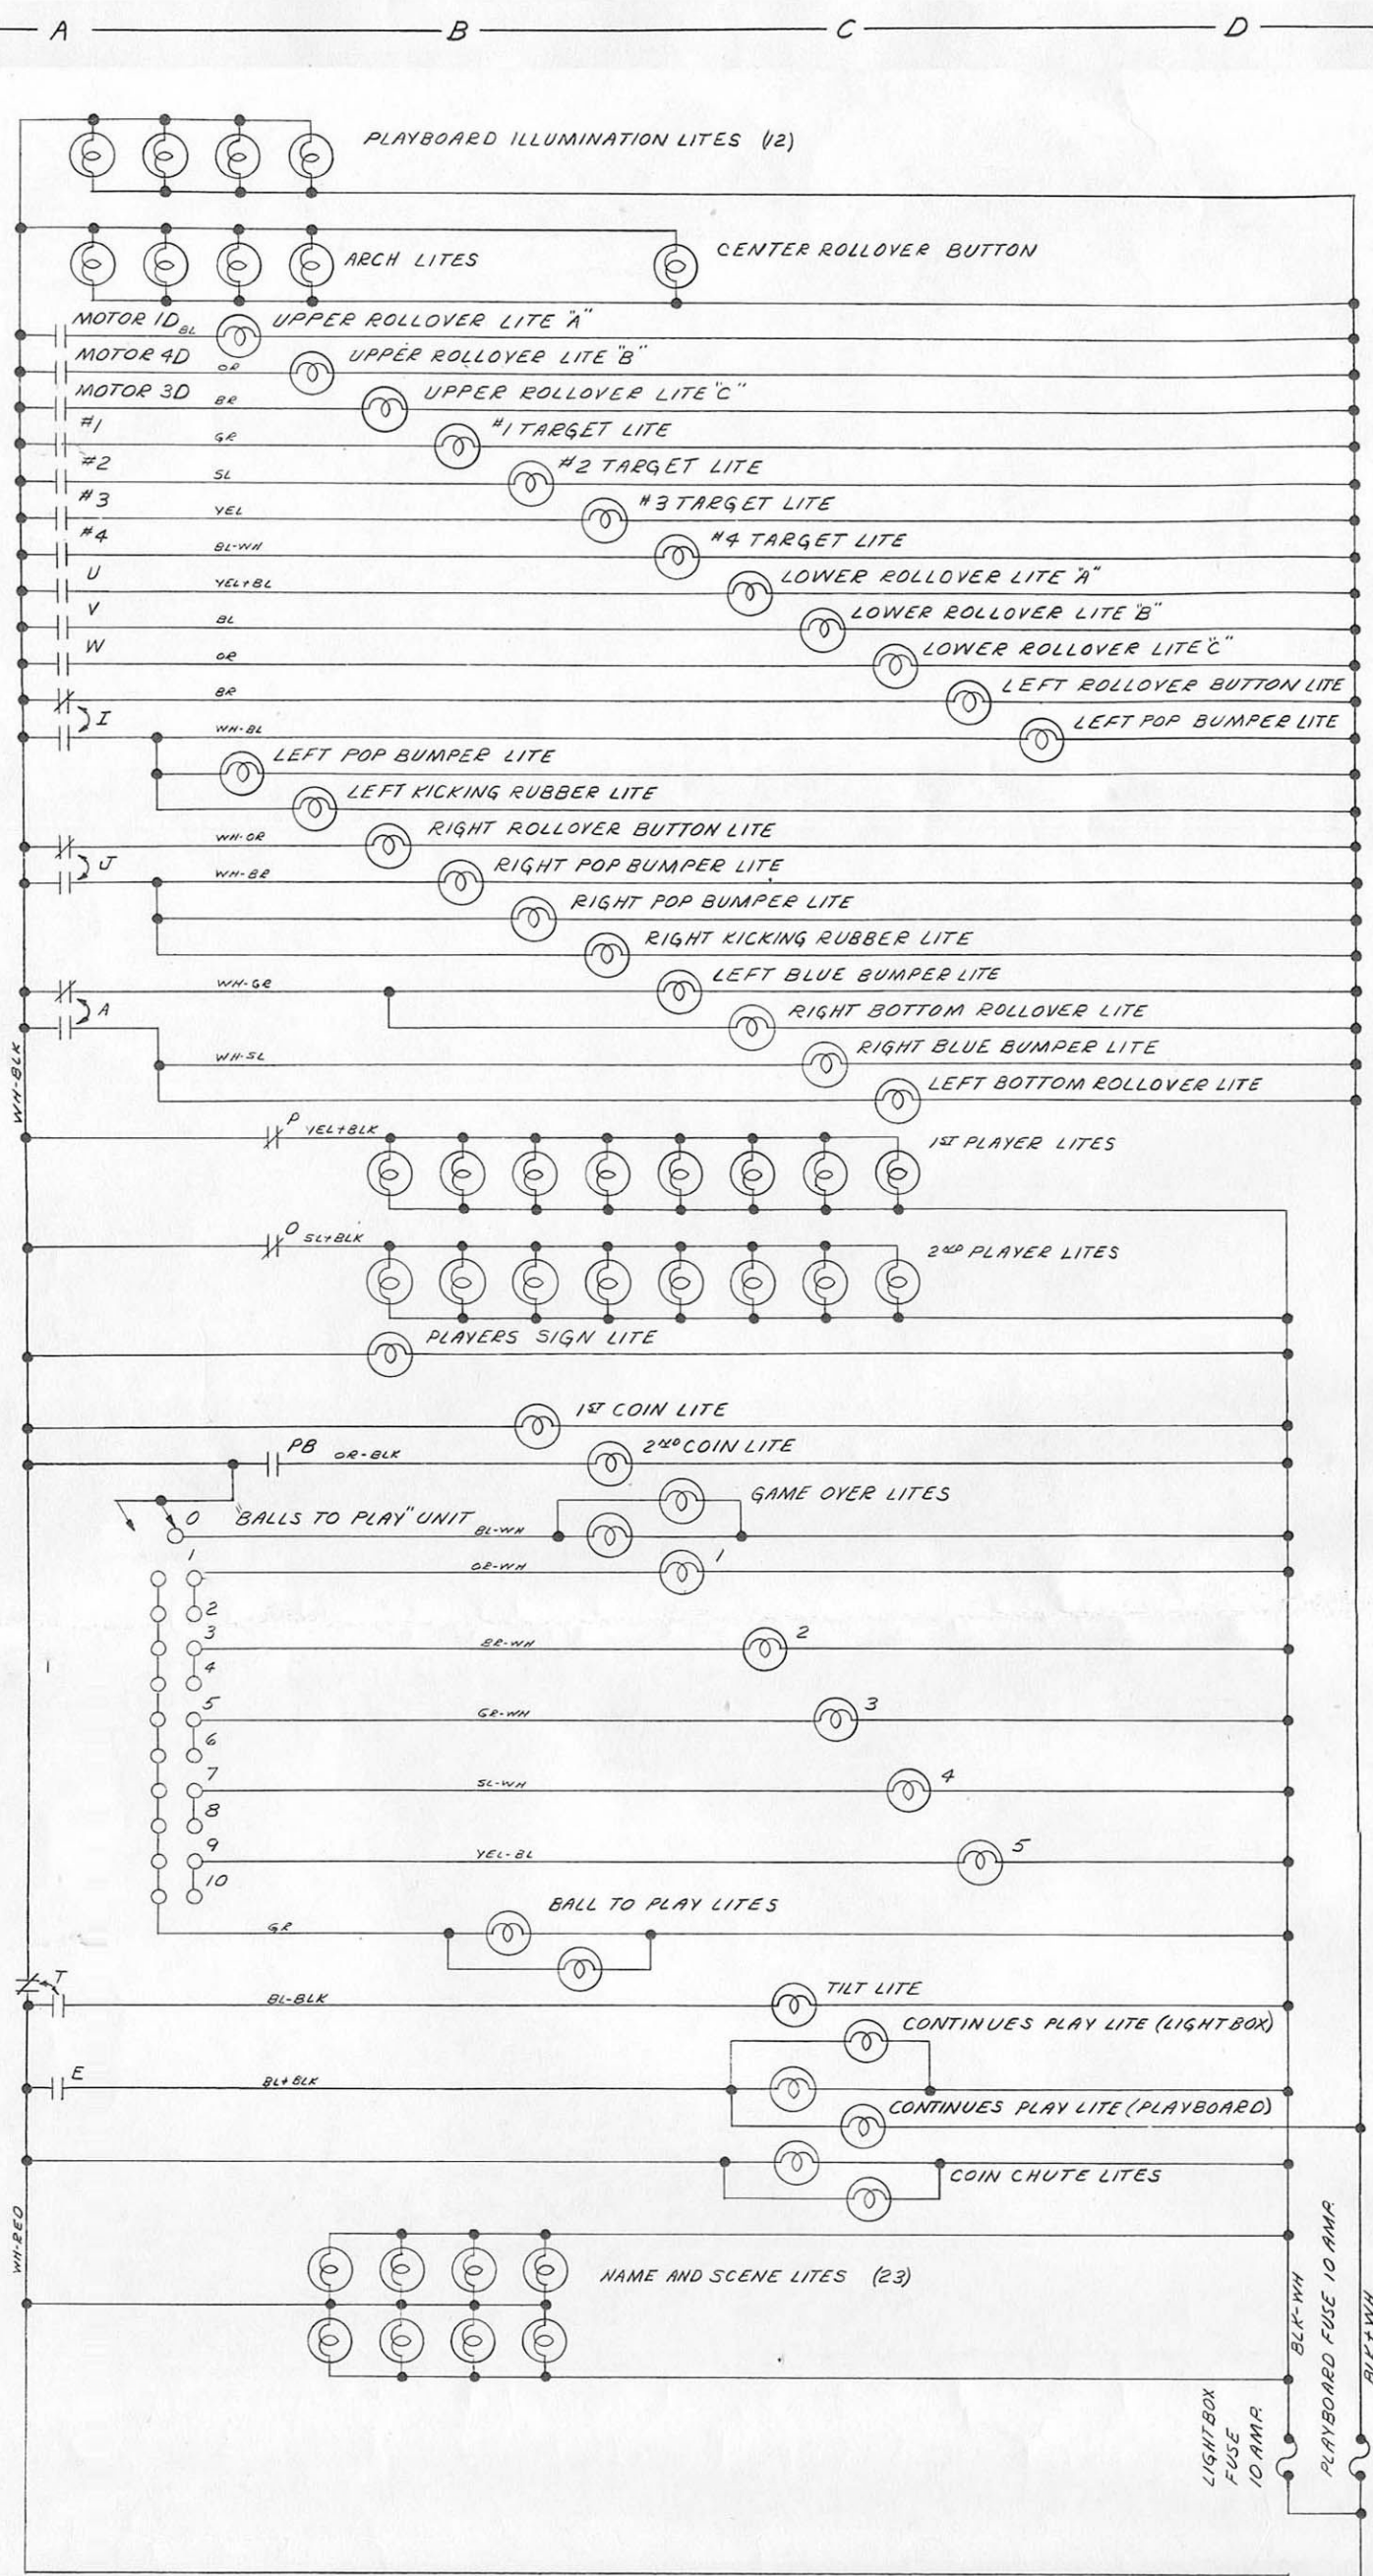 A B C D
PLAYBOARD ILLUMINATION LITES (12)
CENTER ROLLOVER BUTTON
ARCH LITES
MOTOR 1D BL UPPER ROLLOVER LITE "A"
MOTOR 4D OR UPPER ROLLOVER LITE "B"
MOTOR 3D BR UPPER ROLLOVER LITE "C"
#1 GR #1 TARGET LITE
#2 SL #2 TARGET LITE
#3 YEL #3 TARGET LITE
#4 BL-WH #4 TARGET LITE
U YEL+BL LOWER ROLLOVER LITE "A"
V BL LOWER ROLLOVER LITE "B"
W OR LOWER ROLLOVER LITE "C"
BR LEFT ROLLOVER BUTTON LITE
I WH-BL LEFT POP BUMPER LITE
LEFT POP BUMPER LITE
LEFT KICKING RUBBER LITE
WH-OR RIGHT ROLLOVER BUTTON LITE
J WH-BR RIGHT POP BUMPER LITE
RIGHT POP BUMPER LITE
RIGHT KICKING RUBBER LITE
WH-GR LEFT BLUE BUMPER LITE
A RIGHT BOTTOM ROLLOVER LITE
WH-SL RIGHT BLUE BUMPER LITE
LEFT BOTTOM ROLLOVER LITE
WH-BLK
P YEL+BLK 1ST PLAYER LITES
O SL+BLK 2ND PLAYER LITES
PLAYERS SIGN LITE
1ST COIN LITE
PB OR-BLK 2ND COIN LITE
GAME OVER LITES
0 "BALLS TO PLAY" UNIT BL-WH
1 OR-WH 1
2
3 BR-WH 2
4
5 GR-WH 3
6
7 SL-WH 4
8
9 YEL-BL 5
10
BALL TO PLAY LITES
GR
T BL-BLK TILT LITE
CONTINUES PLAY LITE (LIGHTBOX)
E BL+BLK
CONTINUES PLAY LITE (PLAYBOARD)
COIN CHUTE LITES
WH-RED
NAME AND SCENE LITES (23)
BLK-WH
PLAYBOARD FUSE 10 AMP.
BLK+WH
LIGHTBOX
FUSE
10 AMP.